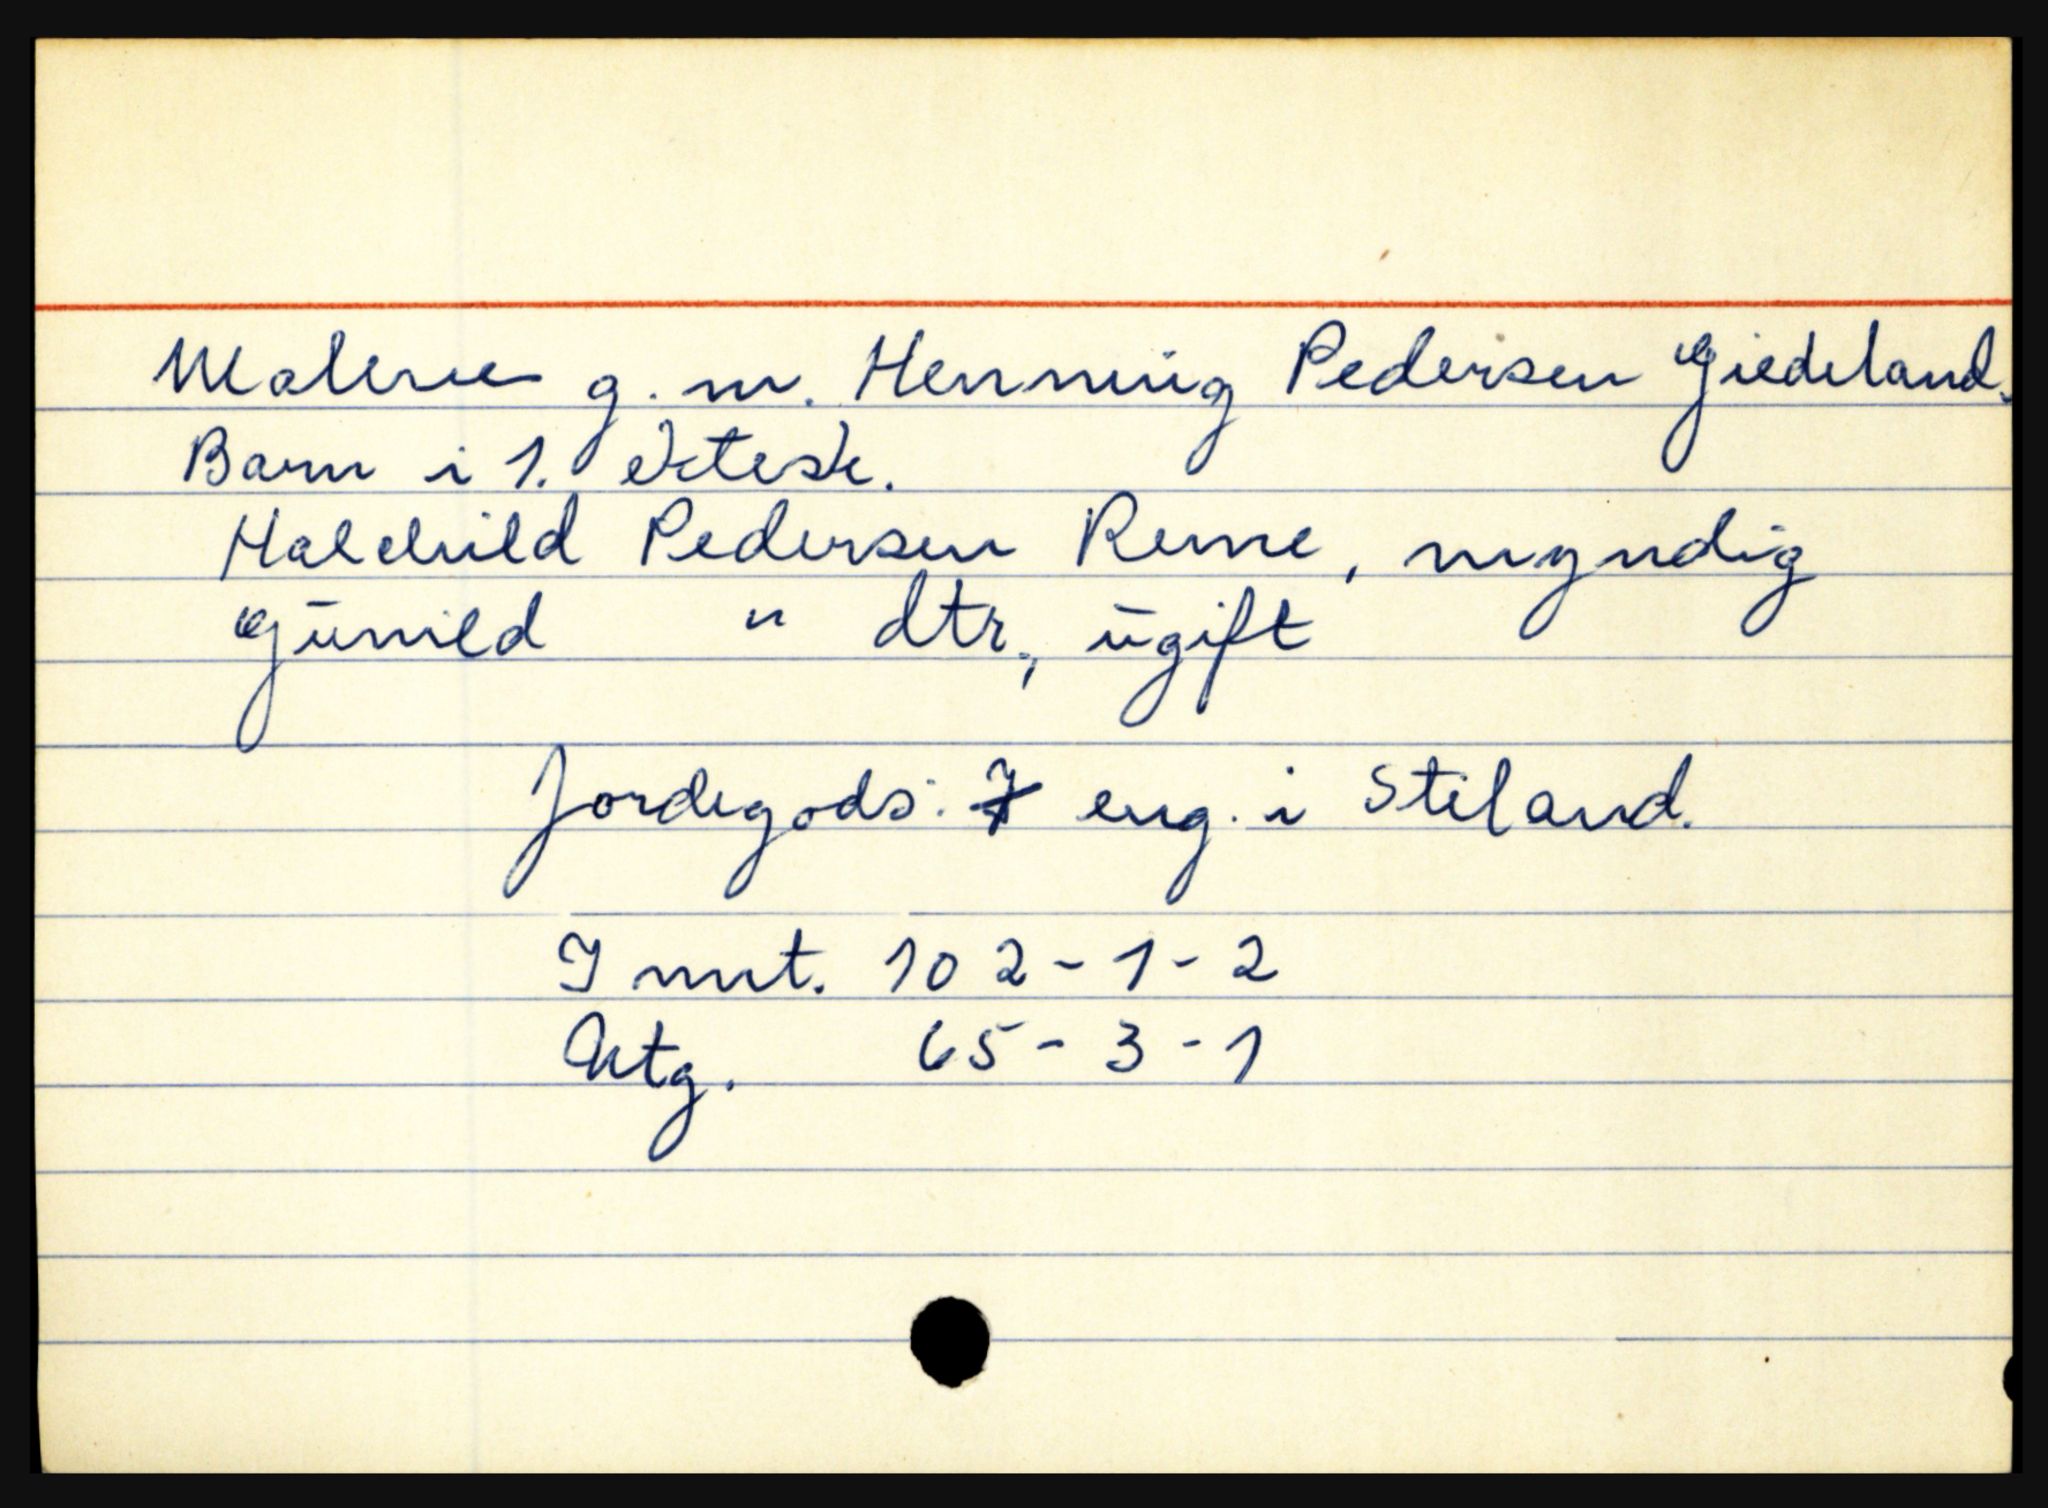 Malene g. m. Henning Pedersen Giedeland.
Barn i 1. ektesk.
Halchild Pedersen Reme, myndig
Gunild " dtr., ugift
Jordegods: 7 eng. i Stiland.
Innt. 102-1-2
Utg. 65-3-1